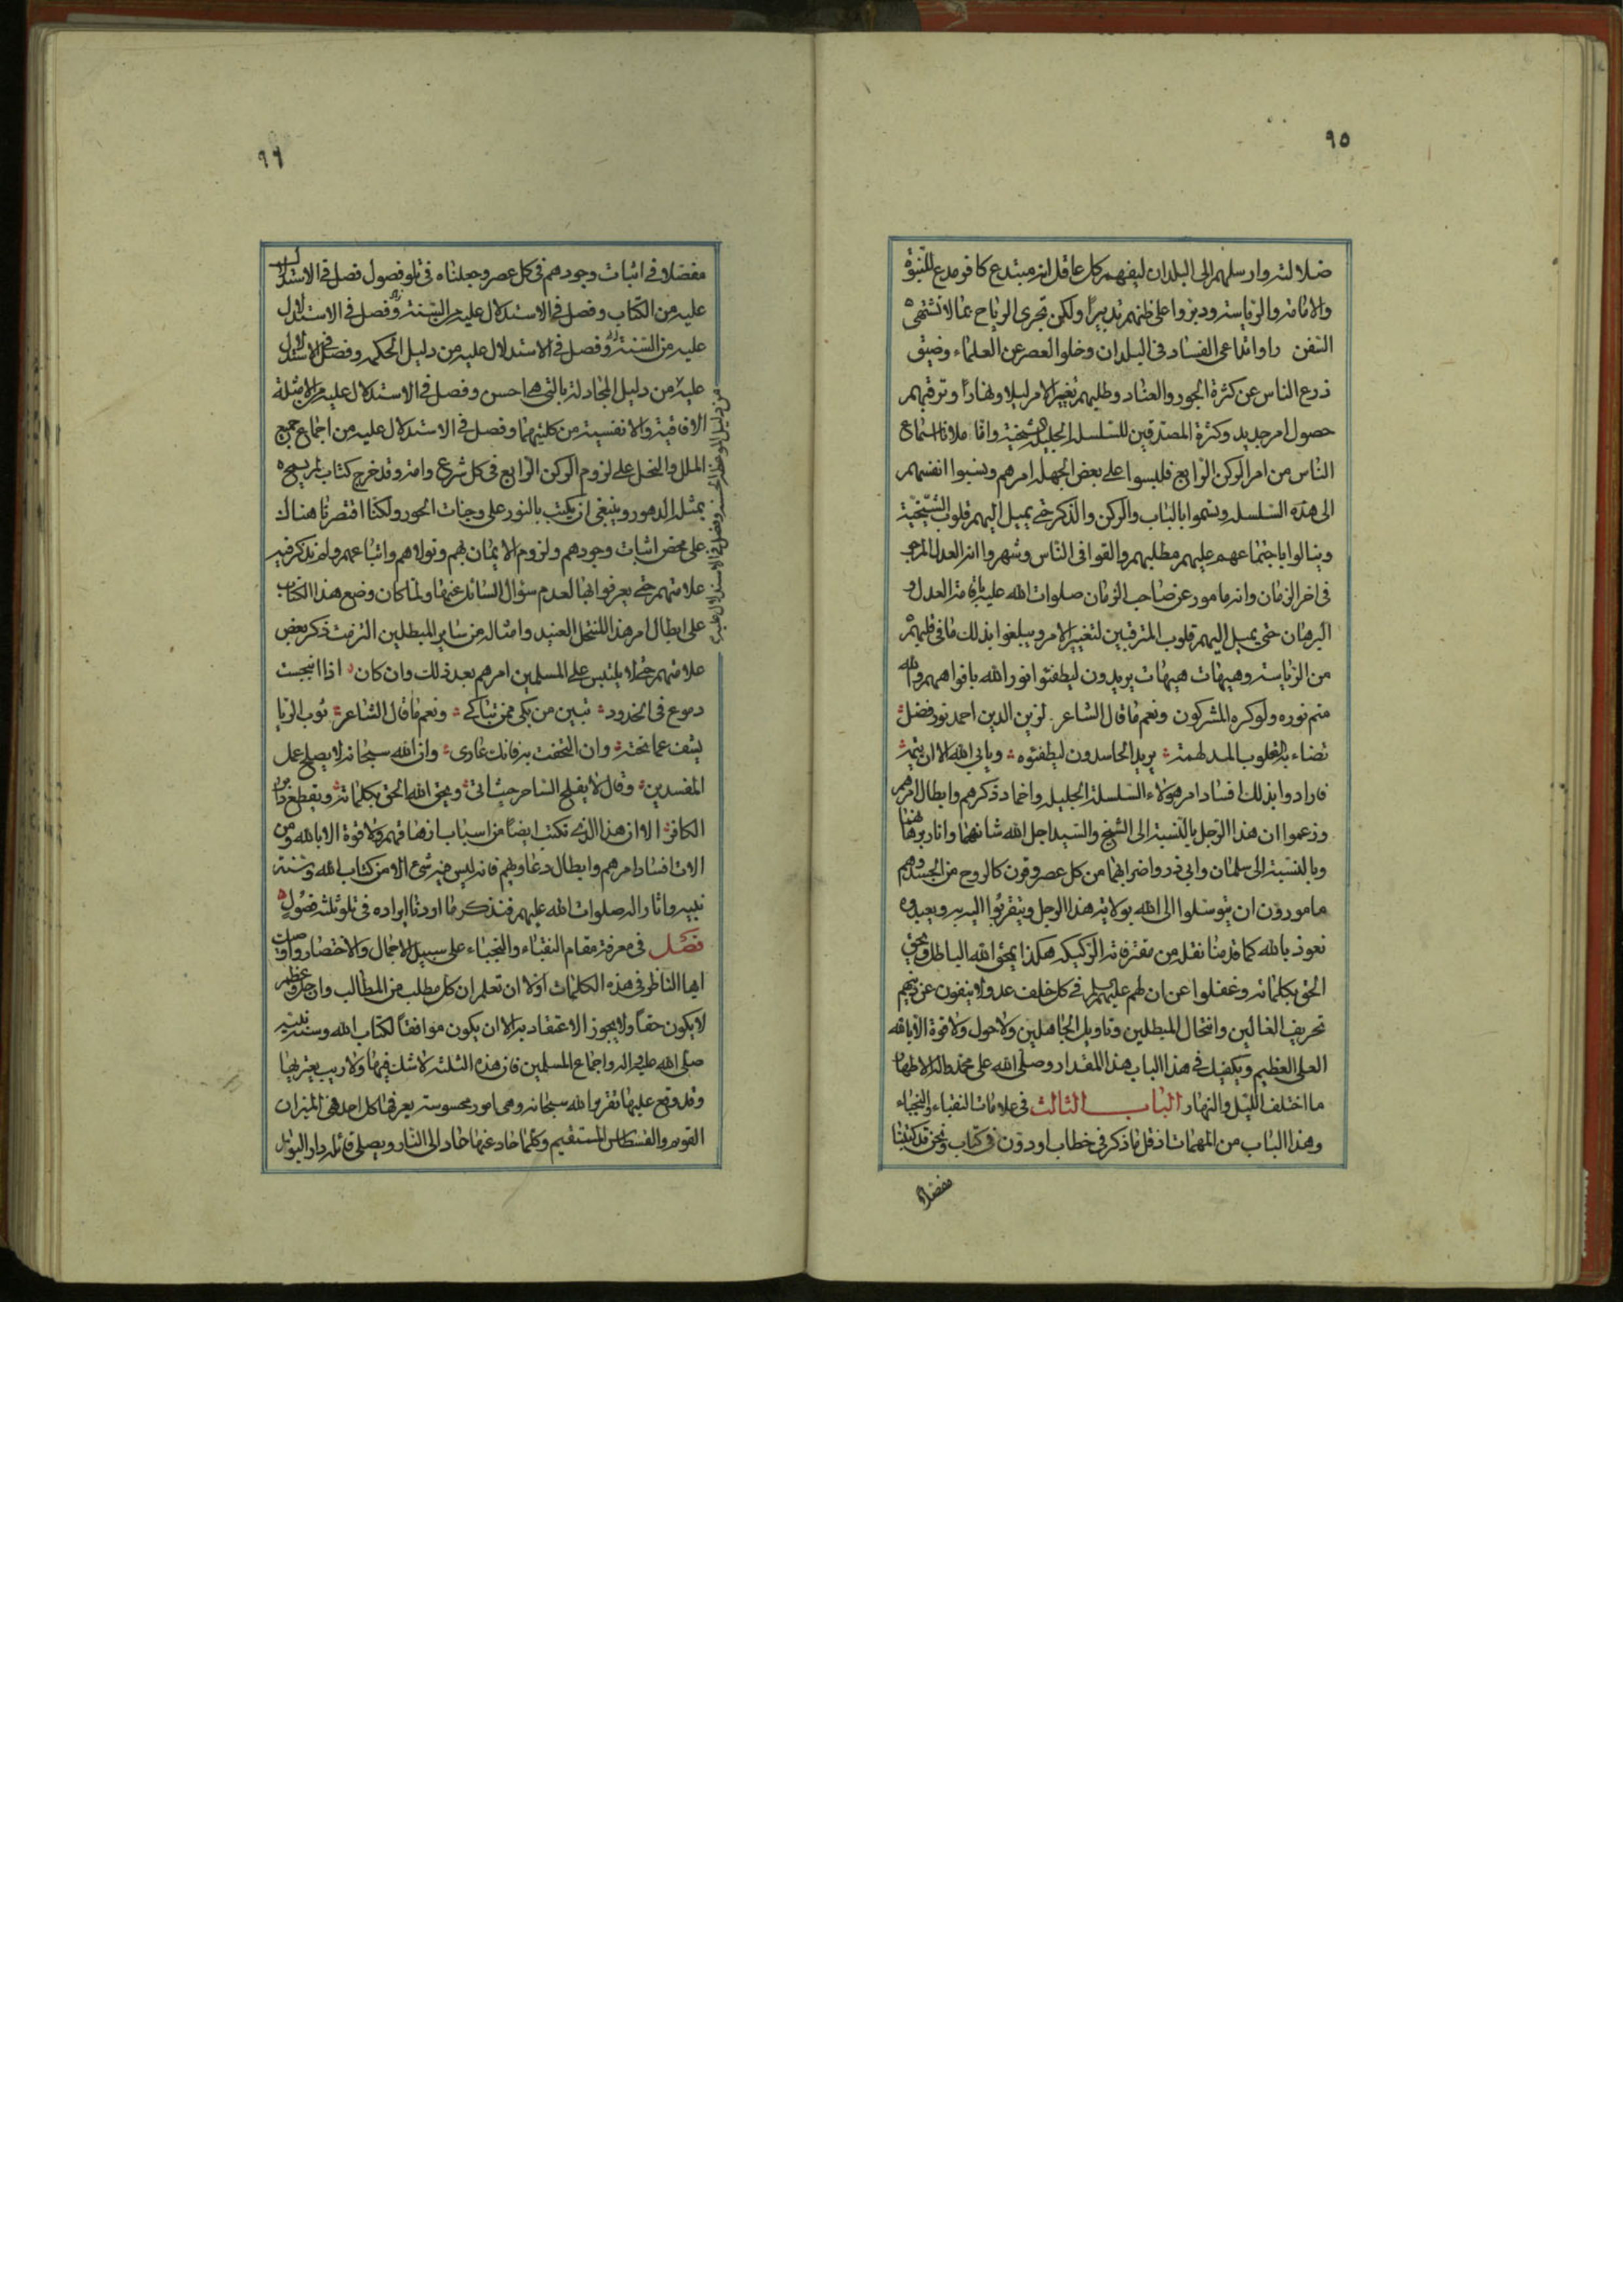 ٩٥
ضلالته وارسلهم الى البلدان ليفهم كل عاقل انه مبتدع كافر مدع للنبوة
والامامة والرياسة ودبروا على ظنهم تدبيرا ولكن تجرى الرياح بما لا تشتهى
السفن راوا تداعى الفساد فى البلدان وخلو العصر عن العلماء وضيق
ذرع الناس عن كثرة الجور والعناد وطلبهم تغيير الامر ليلا ونهارا وترقبهم
حصول امر جديد وكثرة المصدقين للسلسلة الجليلة الشيخية واملاء اسماع
الناس من امر الركن الرابع فلبسوا على بعض الجهلة امرهم ونسبوا انفسهم
الى هذه السلسلة وتسموا بالباب والركن والذكر حتى يميل اليهم قلوب الشيخية
وينالوا باجتماعهم عليهم مطلبهم والقوا فى الناس وشهروا انه العدل المرجو
فى اخر الزمان وانه مامور عن صاحب الزمان صلوات الله عليه باقامة العدل و
البرهان حتى يميل اليهم قلوب المترقبين لتغيير الامر ويبلغوا بذلك ما فى قلبهم
من الرياسة وهيهات هيهات يريدون ليطفئوا نور الله بافواههم والله
متم نوره ولو كره المشركون ونعم ما قال الشاعر لزين الدين احمد نور فضل
تضاء به القلوب المدلهمة يريد الحاسدون ليطفئوه ويابى الله الا ان يتمه
فارادوا بذلك افساد امر هؤلاء السلسلة الجليلة واخماد ذكرهم وابطال امرهم
وزعموا ان هذا الرجل بالنسبة الى الشيخ والسيد اجل الله شانهما وانار برهانهما
وبالنسبة الى سلمان وابى ذر واضرابهما من كل عصر وقرن كالروح من الجسد وهم
مامورون ان يتوسلوا الى الله بولاية هذا الرجل ويتقربوا اليه به ويعبدوه
نعوذ بالله كما قدمنا نقله من مفترقاته الركيكة هكذا يمحو الله الباطل ويحق
الحق بكلماته وغفلوا عن ان لهم عليهم السلم فى كل خلف عدولا ينفون عن دينهم
تحريف الغالين وانتحال المبطلين وتاويل الجاهلين ولا حول ولا قوة الا بالله
العلى العظيم ويكفيك فى هذا الباب هذا المقدار وصلى الله على محمد واله الاطهار
ما اختلف الليل والنهار الباب الثالث فى علامات النقباء والنجباء
وهذا الباب من المهمات اذ قل ما ذكر فى خطاب او دون فى كتاب ونحن قد كتبنا
مفصلا
٩٦
مفصلا فى اثبات وجودهم فى كل عصر وجعلناه فى تلو فصول فصل فى الاستدلال
عليه من الكتاب وفصل فى الاستدلال عليه من السنة وفصل فى الاستدلال
عليه من السنة وفصل فى الاستدلال عليه من دليل الحكمة وفصل فى الاستدلال
من دليل الموعظة الحسنة وفصل فى الاستدلال عليه
عليه من دليل المجادلة بالتى هى احسن وفصل فى الاستدلال عليه من الامثلة
الافاقية والانفسية من كليتهما وفصل فى الاستدلال عليه من اجماع جميع
الملل والنحل على لزوم الركن الرابع فى كل شرع وامة وقد خرج كتاب لم يسمح
بمثله الدهور وينبغى ان يكتب بالنور على وجنات الحور ولكنا اقتصرنا هناك
على محض اثبات وجودهم ولزوم الايمان بهم وتولاهم واتباعهم ولم نذكر فيه
علامتهم حتى يعرفوا بها لعدم سؤال السائل عنها ولما كان وضع هذا الكتاب
على ابطال امر هذا المنتحل العنيد وامثاله من ساير المبطلين التزمت ذكر بعض
علامتهم حتى لا يلتبس على المسلمين امرهم بعد ذلك وان كان اذا انبجست
دموع فى الخدود تبين من بكى ممن تباكى ونعم ما قال الشاعر ثوب الريا
يشف عما تحته وان التحفت به فانك عارى وان الله سبحانه لا يصلح عمل
المفسدين وقال لا يفلح الساحر حيث اتى ويحق الله الحق بكلماته ويقطع دابر
الكافر الا ان هذا الذى نكتب ايضا من اسباب ازهاقهم ولا قوة الا بالله ومن
الات افساد امرهم وابطال دعاويهم فانه ليس فيه شىء الا من كتاب الله وسنة
نبيه واثار اله صلوات الله عليهم فنذكر ما اردنا ايراده فى تلو ثلثة فصول
فصل فى معرفة مقام النقباء والنجباء على سبيل الاجمال والاختصار وا
ايها الناظر فى هذه الكلمات اولا ان تعلم ان كل مطلب من المطالب وان جل وعظم
لا يكون حقا ولا يجوز الاعتقاد به الا ان يكون موافقا لكتاب الله وسنة نبيه
صلى الله عليه واله واجماع المسلمين فان هذه الثلثة لا شك فيها ولا ريب يعتريها
وقد وقع عليها تقرير الله سبحانه وهى امور محسوسة يعرفها كل احد فهى الميزان
القويم والقسطاس المستقيم وكلما حاد عنها حاد الى النار ويصلى قائله دار البوار